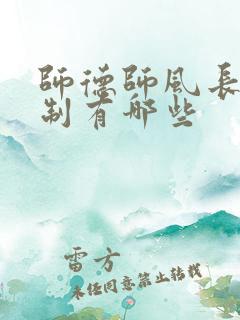 師德師風長
制有哪些
雷方
未经同意禁止转载